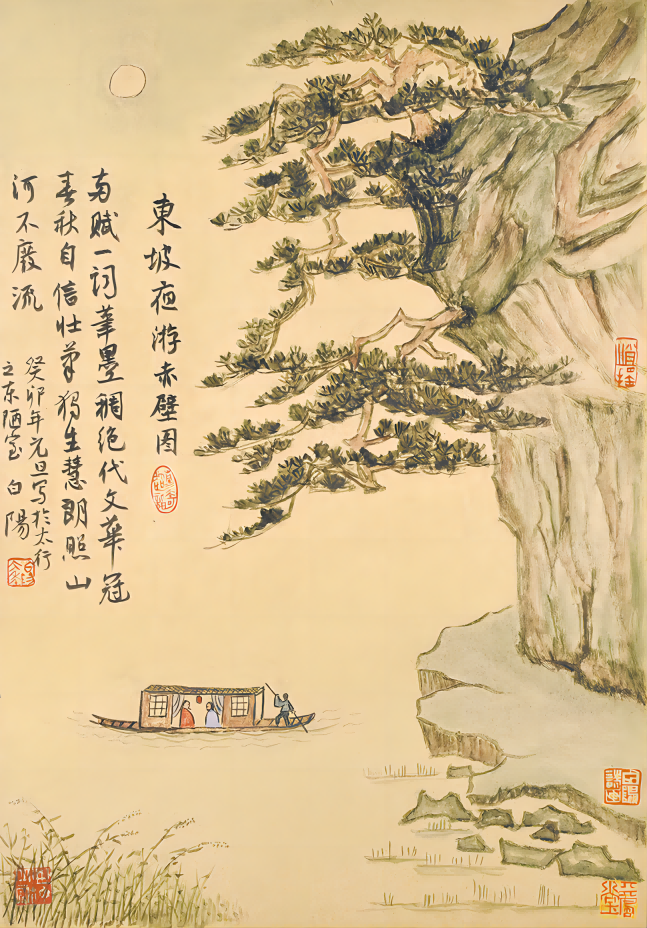 東坡夜游赤壁图
两赋一词筆墨稠绝代文華冠
春秋自信壮筆獨生慧朗照山
河不廢流
癸卯年元旦写於太行
之东陋室 白陽